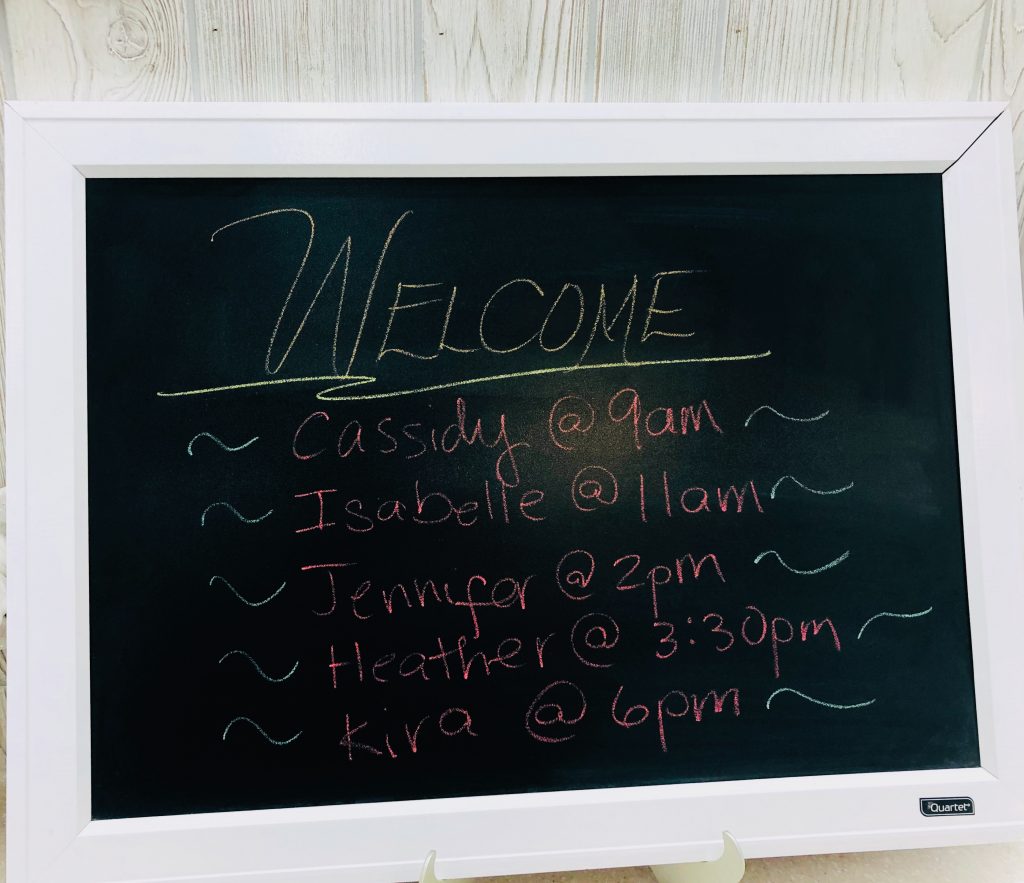 WELCOME
~ Cassidy @ 9am ~
~ Isabelle @ 11am ~
~ Jennifer @ 2pm ~
~ Heather @ 3:30pm ~
~ Kira @ 6pm ~
Quartet